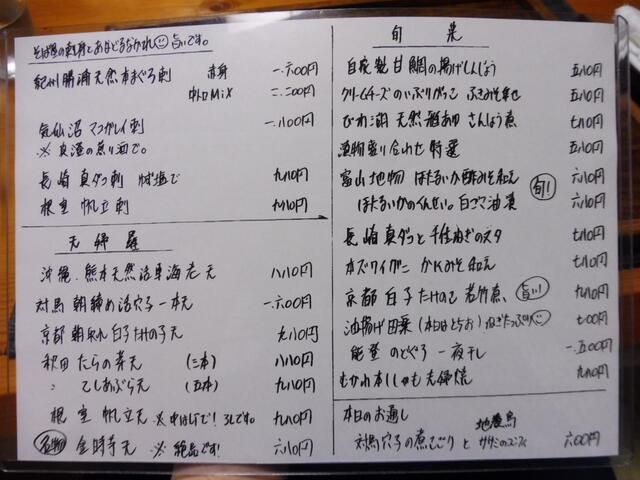 そば屋の刺身とあなどるなかれ 旨いです。
紀州勝浦天然本まぐろ刺 赤身 一、六〇〇円
中トロMiX 二、二〇〇円
気仙沼 マコガレイ刺 一、八〇〇円
※ 真澄の煎り酒で。
長崎 真ダコ刺 減塩で 九八〇円
根室 帆立刺
天婦羅
沖縄、熊本天然活車海老天 八八〇円
対馬 朝締め活穴子一本天 一、六〇〇円
京都 朝取れ白子たけの子天 九八〇円
秋田 たらの芽天 (三本) 八八〇円
〃 こしあぶら天 (五本) 九八〇円
根室 帆立天 ※中はレアで!
名物 金時芋天 ※ 絶品です! 六八〇円
旬菜
自家製甘鯛の揚げしんじょう 五八〇円
クリームチーズのいぶりがっこ ふきみそ乗せ 五八〇円
びわ湖 天然稚あゆ さんしょう煮 七八〇円
漬物盛り合わせ 特選 五八〇円
富山 地物 ほたるいか酢みそ和え 旬! 六八〇円
ほたるいかのくんせい。白ごま油漬 六八〇円
長崎 真ダコと千住ねぎのヌタ 七八〇円
本ズワイガニ かにみそ和え 七八〇円
京都 白子たけのこ 若竹煮 旬!! 九八〇円
油揚げ田楽 (本日はとちお) ねぎたっぷり 七〇〇円
能登 のどぐろ 一夜干し 一、五〇〇円
むかわ本ししゃも 天婦羅 焼 九八〇円
本日のお通し
対馬穴子の煮こごり と 地養鳥 ササミのユッケ 六〇〇円